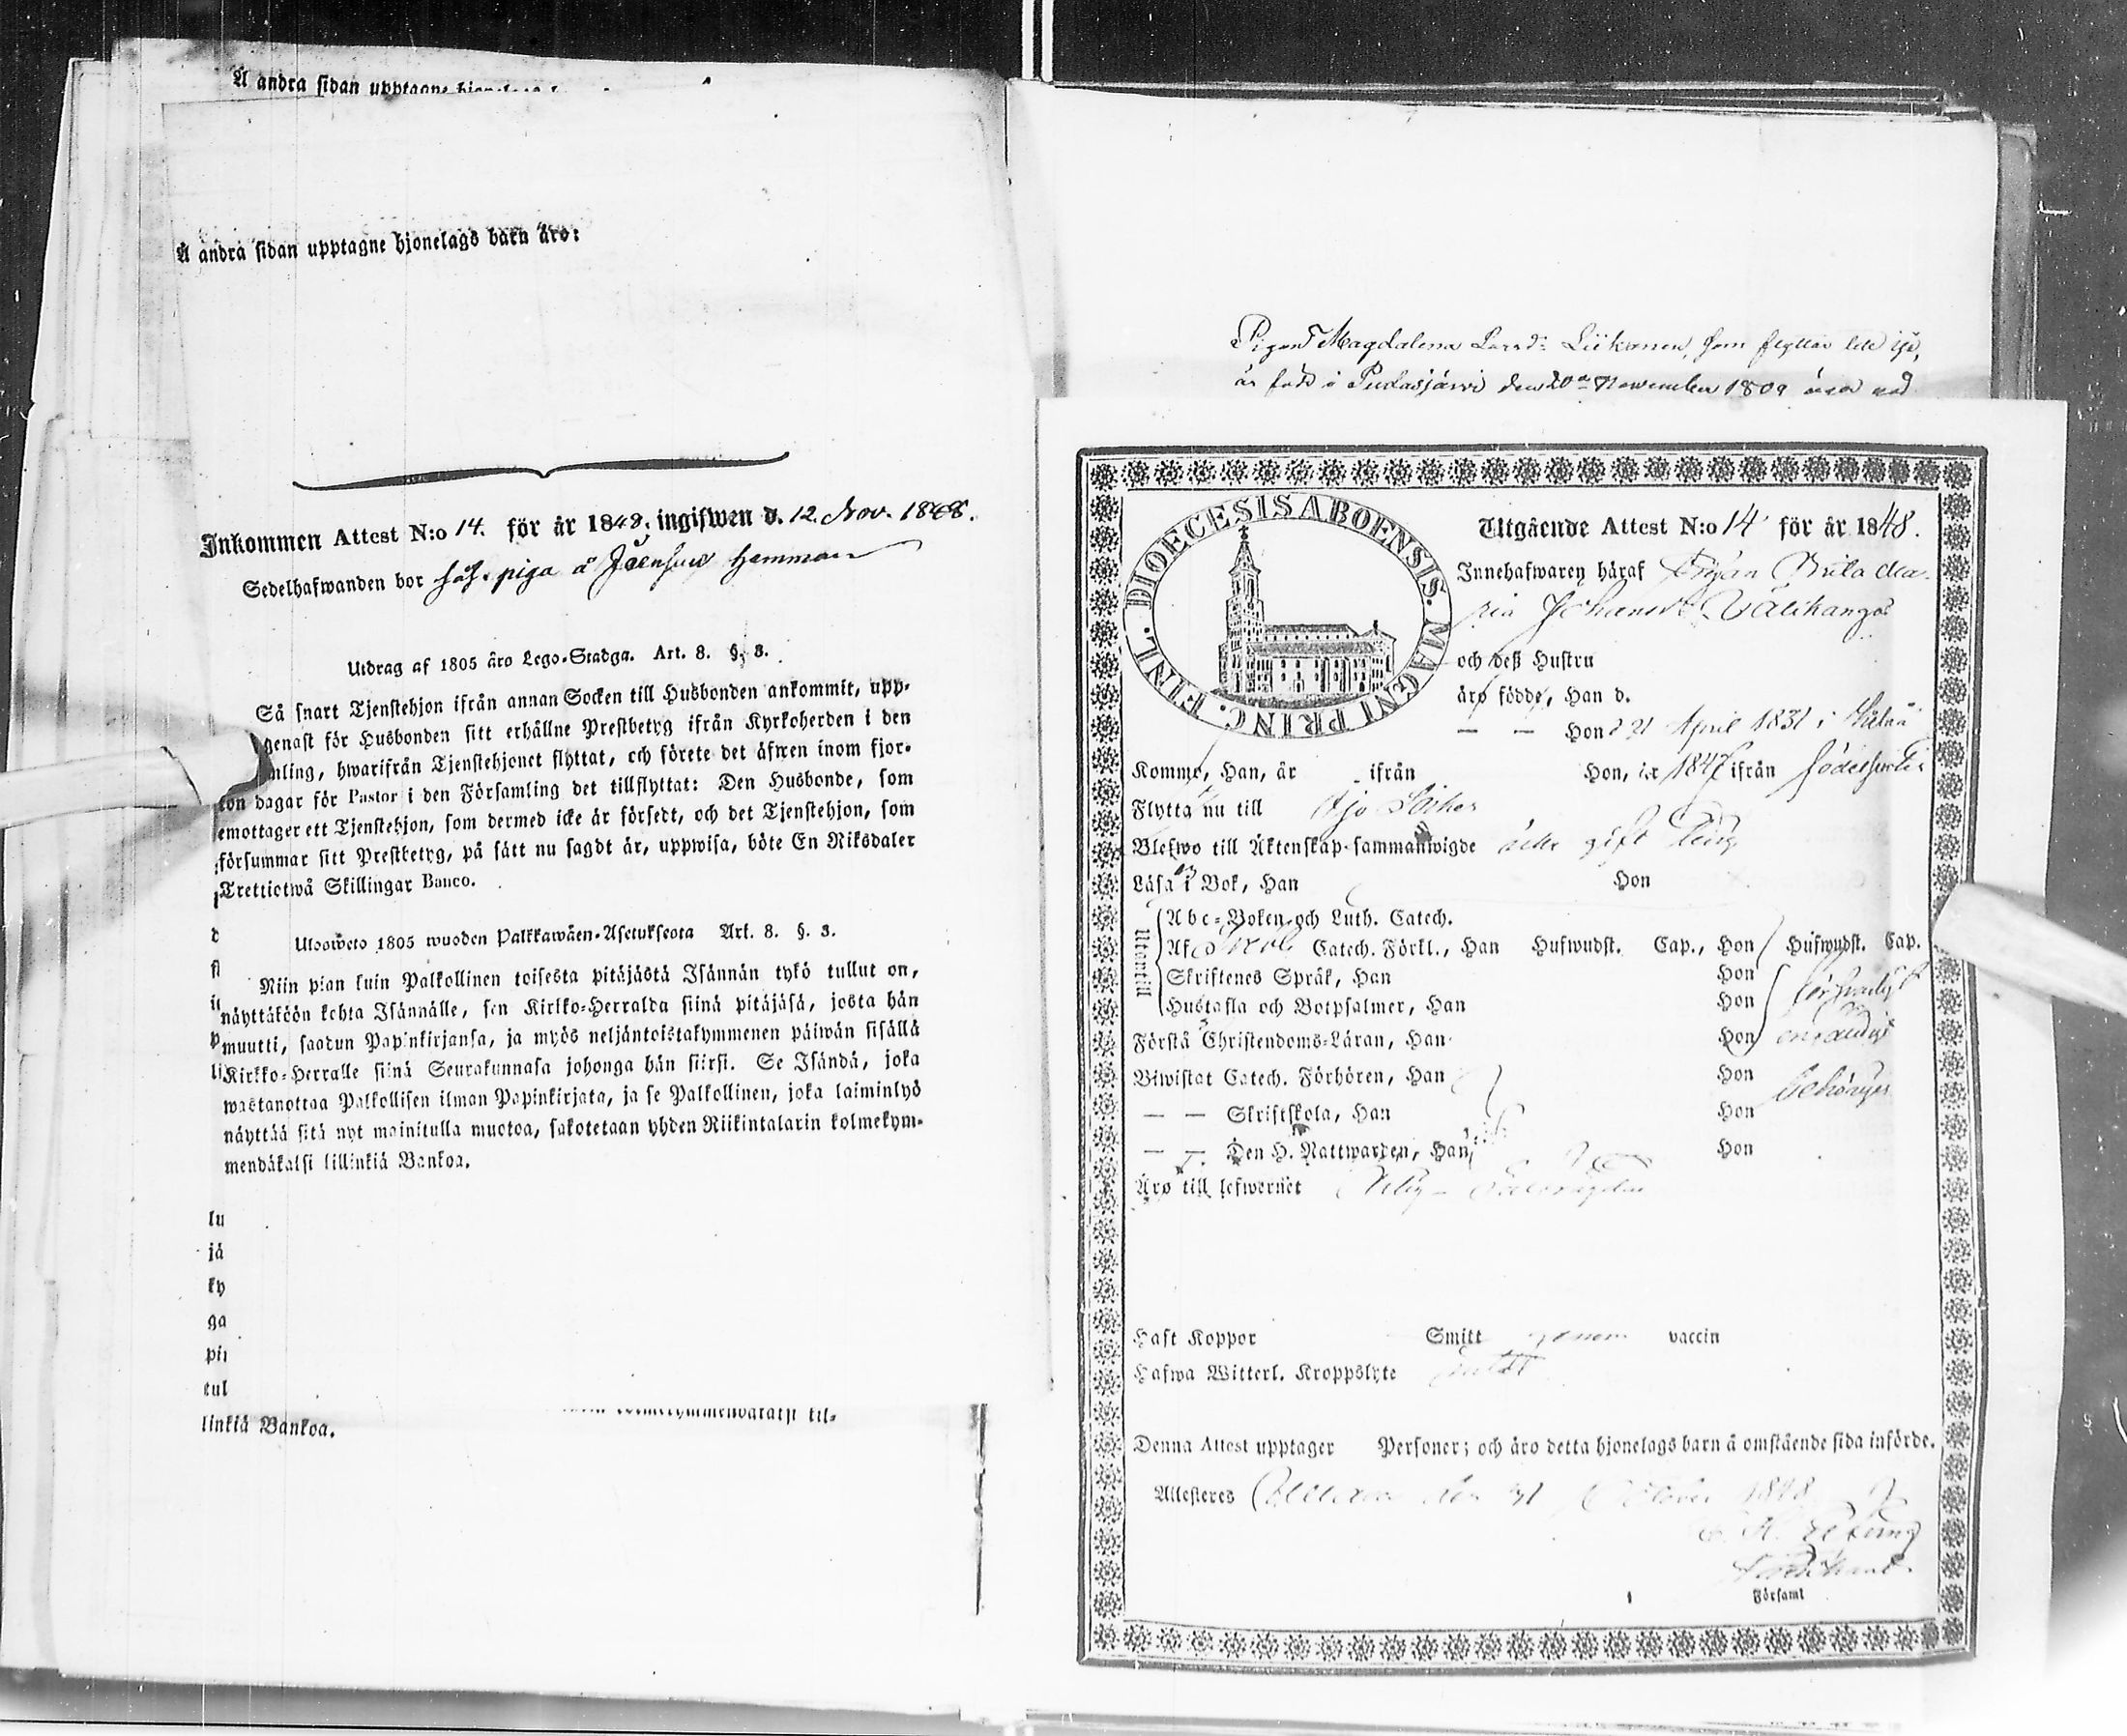 Å andra sidan upptagne
Å andra sidan upptagne hjonelags barn äro:
Inkommen Attest N:o 14. för år 1848. ingifwen d. 12. Nov. 1848.
Sedelhafwanden bor såsom piga å Joensuu Hemman
Utdrag af 1805 åro Lego-Stadga. Art. 8. §. 3.
Så snart Tjenstehjon ifrån annan Socken till Husbonden ankommit, upp-
genast för Husbonden sitt erhållne Prestbetyg ifrån Kyrkoherden i den
mling, hwarifrån Tjenstehjonet flyttat, och förete det äfwen inom fjor-
ton dagar för Pastor i den Församling det tillflyttat: Den Husbonde, som
emottager ett Tjenstehjon, som dermed icke är försedt, och det Tjenstehjon, som
försummar sitt Prestbetyg, på sätt nu sagdt är, uppwisa, böte En Riksdaler
Trettiotwå Skillingar Banco.
Ulosweto 1805 wuoden Palkkawäen-Asetuksesta Art. 8. §. 3.
Niin pian kuin Palkollinen toisesta pitäjästä Isännän tykö tullut on,
näyttäköön kohta Isännälle, sen Kirkko-Herralda siinä pitäjäsä, josta hän
muutti, saadun Papinkirjansa, ja myös neljäntoistakymmenen päiwän sisällä
Kirkko-Herralle siinä Seurakunnasa johonga hän siirsi. Se Isändä, joka
wastanottaa Palkollisen ilman Papinkirjata, ja se Palkollinen, joka laiminlyö
näyttää sitä nyt mainitulla muotoa, sakotetaan yhden Riikintalarin kolmekym-
mendäkaksi killinkiä Bankoa.
lu
jä
ky
ga
pii
tul
kil-
linkiä Bankoa.
Pigan Magdalena Larsd: Liikanen, som flyttar till Ijo,
är född i Pudasjärvi den 20de November 1809
DIOECESIS ABOENSIS. MAGNI PRINC. FINL.
Utgående Attest N:o 14 för år 1848.
Innehafwaren häraf Pigan Brita Ma-
ria Johansd. Välikangas
och deß Hustru
äro födde, Han d.
— — Hon d 21 April 1831 i
Komme, Han, år ifrån Hon, år 1847 ifrån
Flytta nu till Ijo Socken
Blefwo till Äktenskap sammanwigde
Läsa i Bok, Han Hon
Utantill
Abc-Boken och Luth. Catech.
Af Catech. Förkl., Han Hufwudst. Cap., Hon Hufwudst. Cap.
Skriftenes Språk, Han Hon
Hustafla och Botpsalmer, Han Hon försvarligt
Förstå Christendoms-Läran, Han Hon
Biwistat Catech. Förhören, Han Hon
— — Skriftskola, Han Hon
— — Den H. Nattwarden, Han Hon
Äro till lefwernet
Haft Koppor Smitt genom vaccin
Hafwa Witterl. Kroppslyte
Denna Attest upptager Personer; och äro detta hjonelags barn å omstående sida införde.
Attesteres den 31 October 1848
i Församl